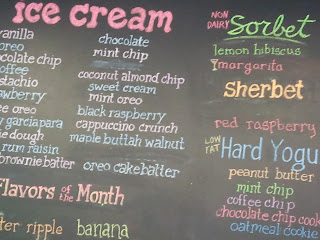 ice cream
vanilla
oreo
ocolate chip
coffee
stachio
awberry
ee oreo
y garcia para
ie dough
rum raisin
brownie batter
chocolate
mint chip
coconut almond chip
sweet cream
mint oreo
black raspberry
cappuccino crunch
maple buttah walnut
oreo cake batter
Flavors of the Month
ter ripple
banana
NON DAIRY Sorbet
lemon hibiscus
margarita
sherbet
red raspberry
LOW FAT Hard Yogu
peanut butter
mint chip
coffee chip
chocolate chip cook
oatmeal cookie